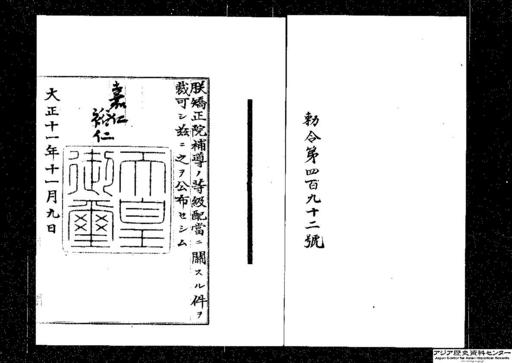 勅令第四百九十二號
朕矯正院補導ノ等級配當ニ關スル件ヲ
裁可シ茲ニ之ヲ公布セシム
嘉仁
裕仁
天皇
御璽
大正十一年十一月九日
アジア歴史資料センター
Japan Center for Asian Historical Records